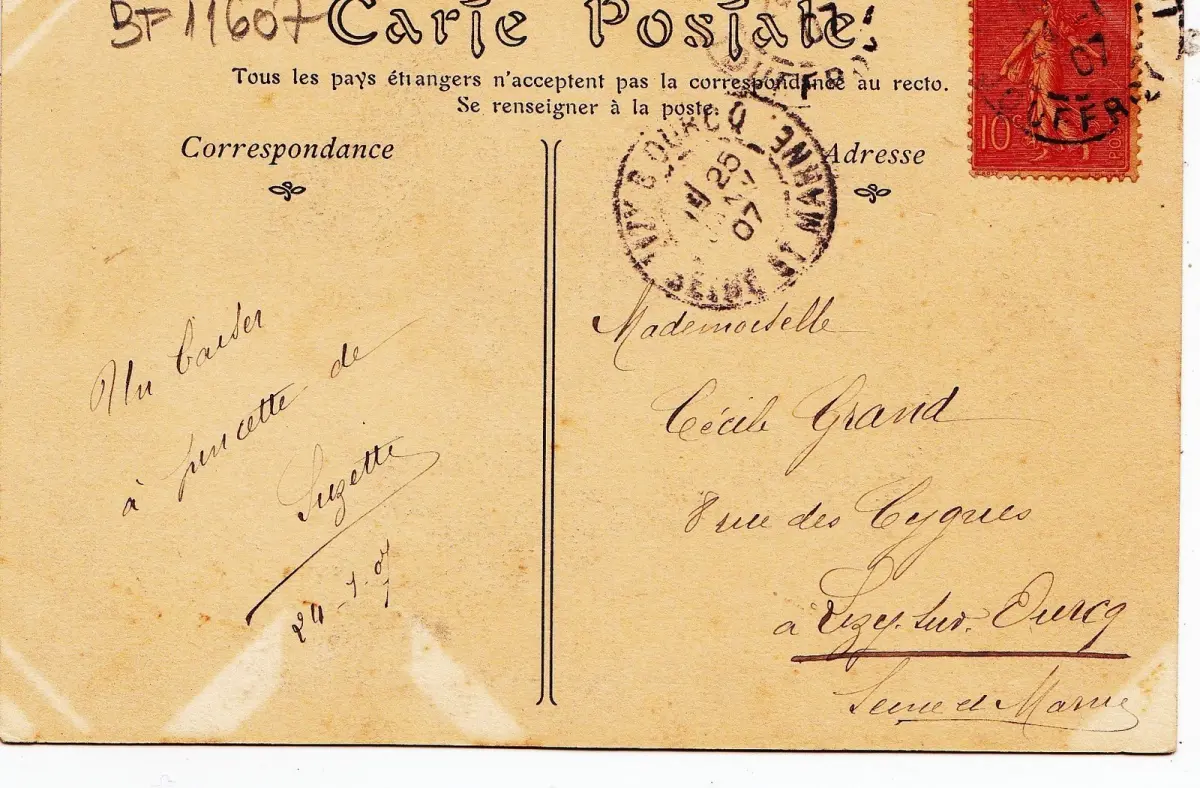 BF 11607
Carte Postale
Tous les pays étrangers n'acceptent pas la correspondance au recto.
Se renseigner à la poste.
Correspondance
Adresse
10c
07
25
07
SEINE ET MARNE
Un baiser
à pincette de
Suzette
24-7-07
Mademoiselle
Cécile Grand
8 rue des Cygnes
à Lizy-sur-Ourcq
Seine et Marne